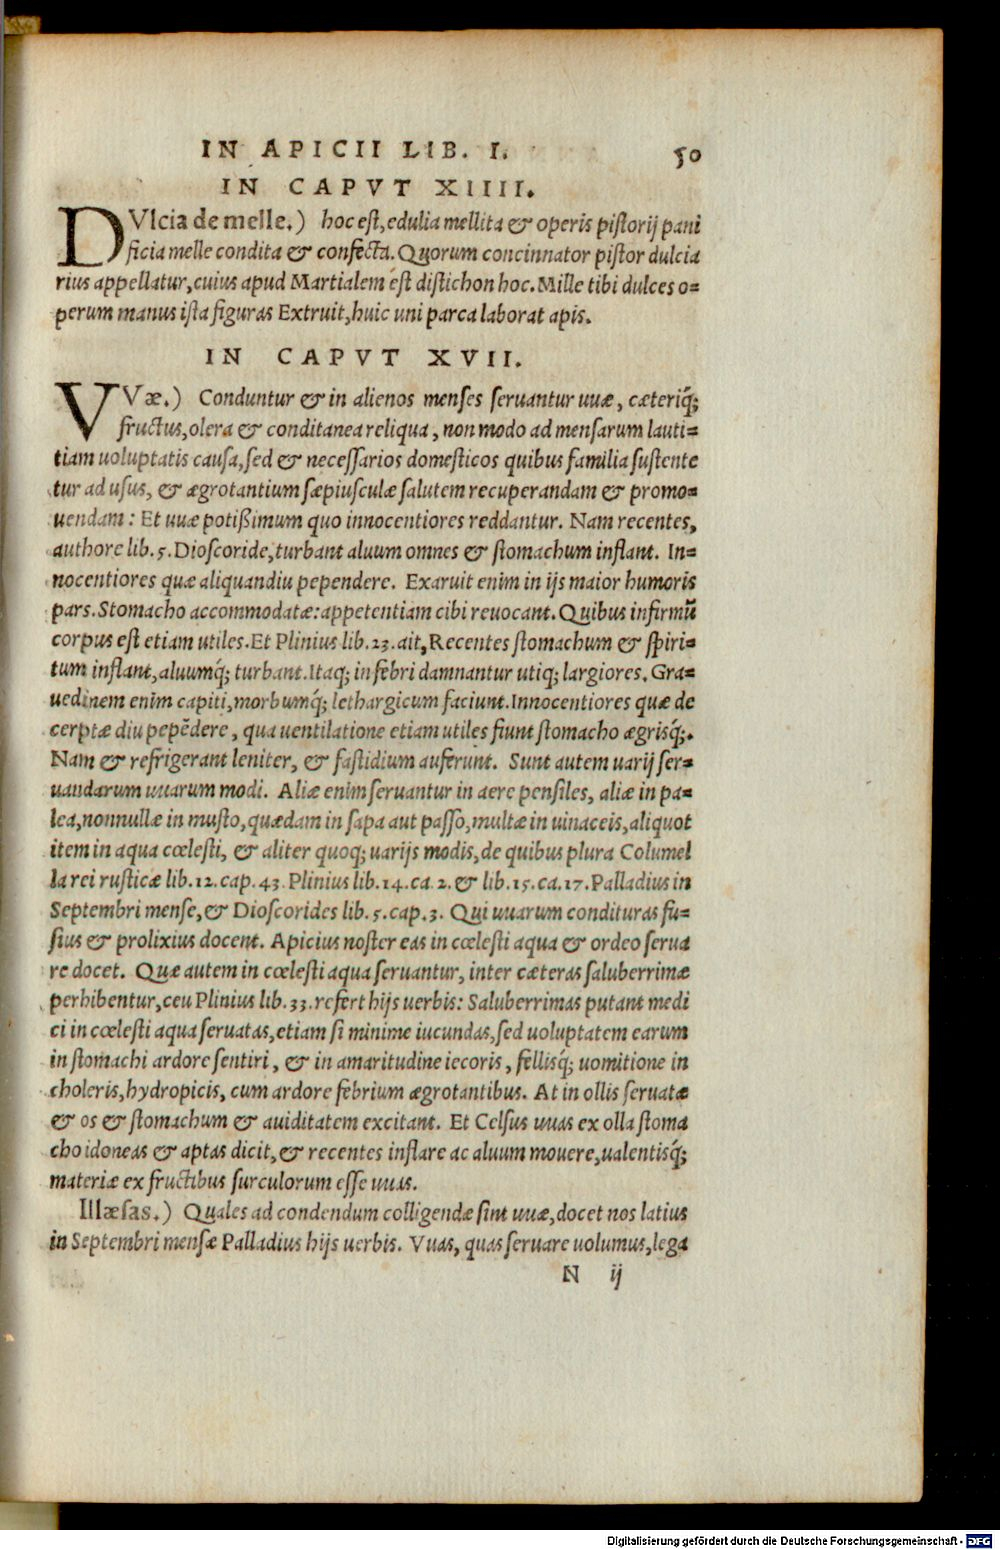 IN APICII LIB. I. 50
IN CAPVT XIIII.
DVlcia de melle.) hoc eſt, edulia mellita & operis piſtorij pani
ficia melle condita & confecta. Quorum concinnator piſtor dulcia
rius appellatur, cuius apud Martialem eſt diſtichon hoc. Mille tibi dulces o=
perum manus iſta figuras Extruit, huic uni parca laborat apis.
IN CAPVT XVII.
VVæ.) Conduntur & in alienos menſes ſeruantur uuæ, cæteriq́;
fructus, olera & conditanea reliqua, non modo ad menſarum lauti=
tiam uoluptatis cauſa, ſed & neceſſarios domeſticos quibus familia ſuſtente
tur ad uſus, & ægrotantium ſæpiuſculæ ſalutem recuperandam & promo=
uendam: Et uuæ potißimum quo innocentiores reddantur. Nam recentes,
authore lib. 5. Dioſcoride, turbant aluum omnes & ſtomachum inflant. In=
nocentiores quæ aliquandiu pependere. Exaruit enim in ijs maior humoris
pars. Stomacho accommodatæ: appetentiam cibi reuocant. Quibus infirmū
corpus eſt etiam utiles. Et Plinius lib. 23. ait, Recentes ſtomachum & ſpiri=
tum inflant, aluumq́; turbant. Itaq; in febri damnantur utiq; largiores. Gra=
uedinem enim capiti, morbumq́; lethargicum faciunt. Innocentiores quæ de
cerptæ diu pepēdere, qua uentilatione etiam utiles fiunt ſtomacho ægrisq́;.
Nam & refrigerant leniter, & faſtidium auferunt. Sunt autem uarij ſer=
uandarum uuarum modi. Aliæ enim ſeruantur in aere penſiles, aliæ in pa=
lea, nonnullæ in muſto, quædam in ſapa aut paſſo, multæ in uinaceis, aliquot
item in aqua cœleſti, & aliter quoq; uarijs modis, de quibus plura Columel
la rei ruſticæ lib. 12. cap. 43. Plinius lib. 14. ca. 2. & lib. 15. ca. 17. Palladius in
Septembri menſe, & Dioſcorides lib. 5. cap. 3. Qui uuarum condituras fu=
ſius & prolixius docent. Apicius noſter eas in cœleſti aqua & ordeo ſerua
re docet. Quæ autem in cœleſti aqua ſeruantur, inter cæteras ſaluberrimæ
perhibentur, ceu Plinius lib. 33. refert hijs uerbis: Saluberrimas putant medi
ci in cœleſti aqua ſeruatas, etiam ſi minime iucundas, ſed uoluptatem earum
in ſtomachi ardore ſentiri, & in amaritudine iecoris, fellisq́; uomitione in
choleris, hydropicis, cum ardore febrium ægrotantibus. At in ollis ſeruatæ
& os & ſtomachum & auiditatem excitant. Et Celſus uuas ex olla ſtoma
cho idoneas & aptas dicit, & recentes inflare ac aluum mouere, ualentisq́;
materiæ ex fructibus ſurculorum eſſe uuas.
Illæſas.) Quales ad condendum colligendæ ſint uuæ, docet nos latius
in Septembri menſæ Palladius hijs uerbis. Vuas, quas ſeruare uolumus, lega
N ij
Digitalisierung gefördert durch die Deutsche Forschungsgemeinschaft - DFG